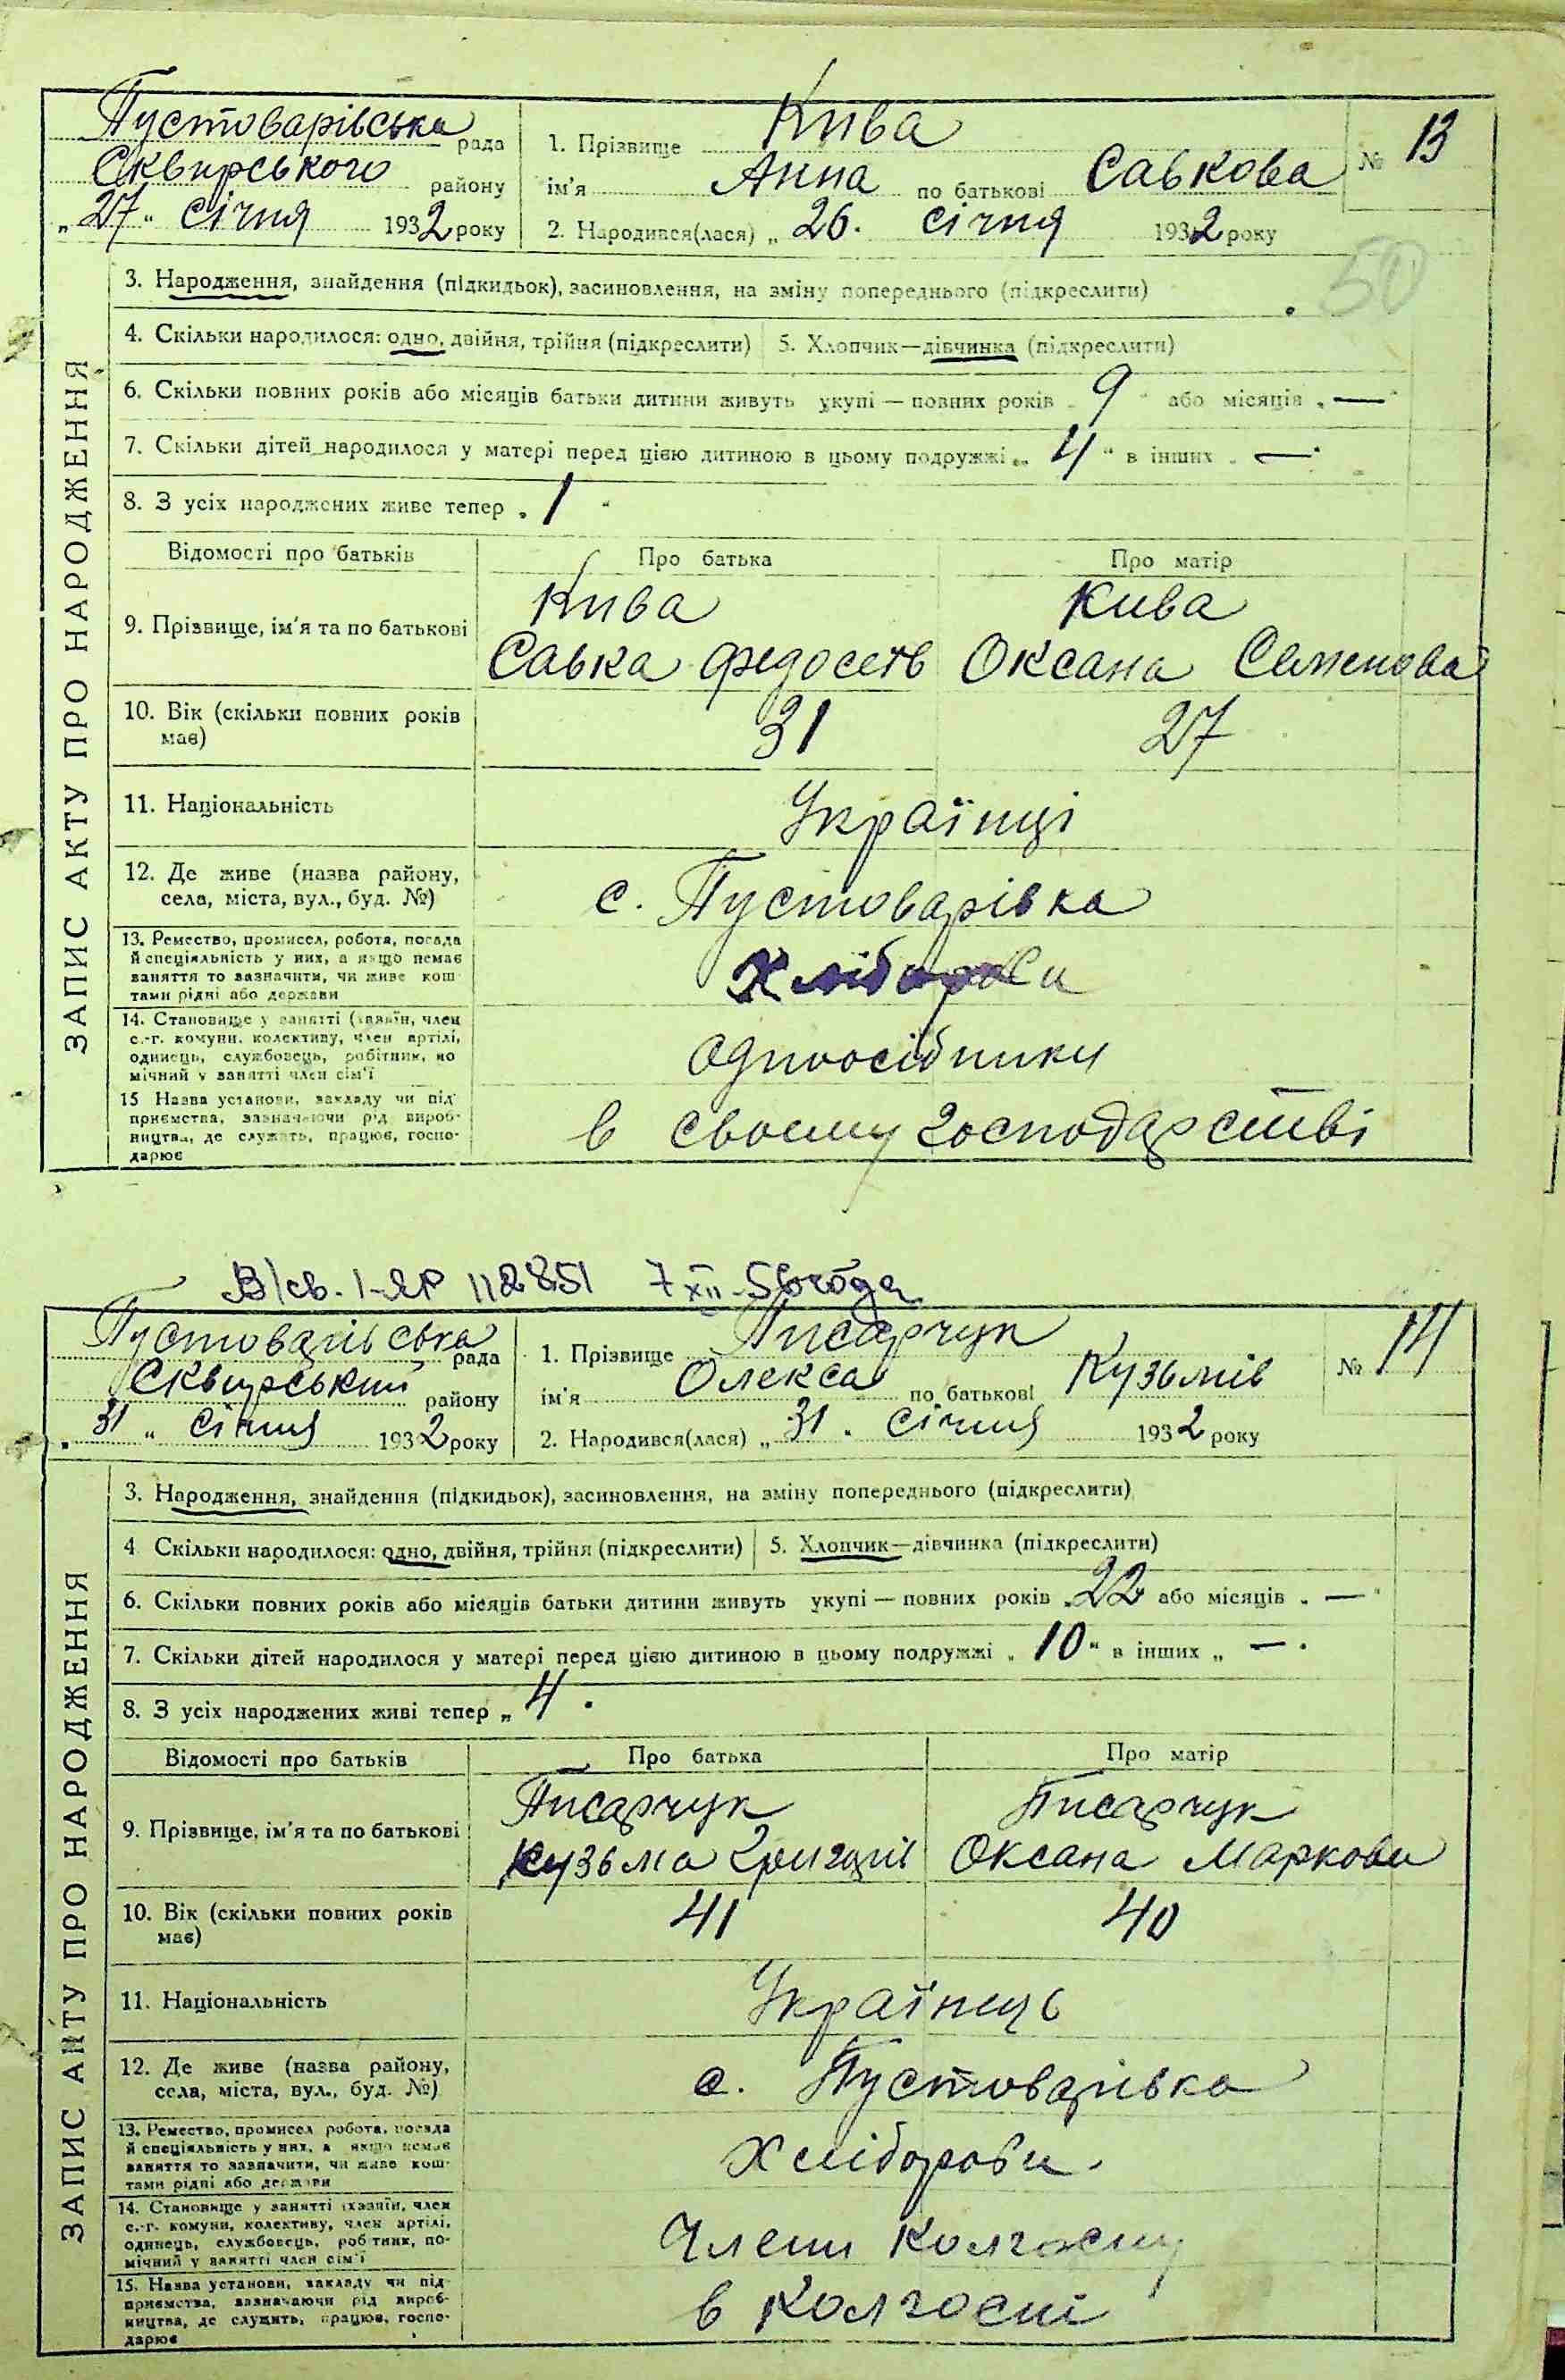 Пустоварівська рада
Сквирського району
„27“ січня 1932 року
1. Прізвище Кива
ім'я Анна по батькові Савкова
2. Народився(лася) „26. січня 1932 року
№ 13
50
ЗАПИС АКТУ ПРО НАРОДЖЕННЯ
3. Народження, знайдення (підкидьок), засиновлення, на зміну попереднього (підкреслити)
4. Скільки народилося: одно, двійня, трійня (підкреслити) 5. Хлопчик—дівчинка (підкреслити)
6. Скільки повних років або місяців батьки дитини живуть укупі — повних років „9“ або місяців „—“
7. Скільки дітей народилося у матері перед цією дитиною в цьому подружжі „4“ в інших „—“
8. З усіх народжених живе тепер „1“
Відомості про батьків Про батька Про матір
9. Прізвище, ім'я та по батькові
Кива Кива
Савка Федосеів Оксана Семенова
10. Вік (скільки повних років має) 31 27
11. Національність Українці
12. Де живе (назва району,
села, міста, вул., буд. №) с. Пустоварівка
13. Ремество, промисел, робота, посада
й спеціяльність у них, а якщо немає
заняття то зазначити, чи живе кош-
тами рідні або держави
Хлібороби
14. Становище у занятті (хазяїн, член
с.-г. комуни, колективу, член артілі,
одинець, службовець, робітник, по
мічний у занятті член сім'ї
Одноосібники
15 Назва установи, закладу чи під
приємства, зазначаючи рід вироб-
ництва, де служить, працює, госпо-
дарює
в своєму господарстві
В/св. І-ЯР 112851 7 XII-56 года
Пустоварівська рада
Сквирський району
„31“ січня 1932 року
1. Прізвище Писарчук
ім'я Олекса по батькові Кузьмів
2. Народився(лася) „31. січня 1932 року
№ 14
ЗАПИС АКТУ ПРО НАРОДЖЕННЯ
3. Народження, знайдення (підкидьок), засиновлення, на зміну попереднього (підкреслити)
4 Скільки народилося: одно, двійня, трійня (підкреслити) 5. Хлопчик—дівчинка (підкреслити)
6. Скільки повних років або місяців батьки дитини живуть укупі — повних років „22 або місяців „—“
7. Скільки дітей народилося у матері перед цією дитиною в цьому подружжі „10“ в інших „—“
8. З усіх народжених живі тепер „4“
Відомості про батьків Про батька Про матір
9. Прізвище, ім'я та по батькові
Писарчук Писарчук
Кузьма Григорів Оксана Маркови
10. Вік (скільки повних років має) 41 40
11. Національність Українець
12. Де живе (назва району,
села, міста, вул., буд. №) с. Пустоварівка
13. Ремество, промисел робота, посада
й спеціяльність у них, а якщо немає
заняття то зазначити, чи живе кош-
тами рідні або держави
Хлібороби.
14. Становище у занятті (хазяїн, член
с.-г. комуни, колективу, член артілі,
одинець, службовець, робтник, по-
мічний у занятті член сім'ї
Члени колгоспу
15. Назва установи, закладу чи під
приємства, зазначаючи рід вироб-
ництва, де служить, працює, госпо-
дарює
в колгоспі